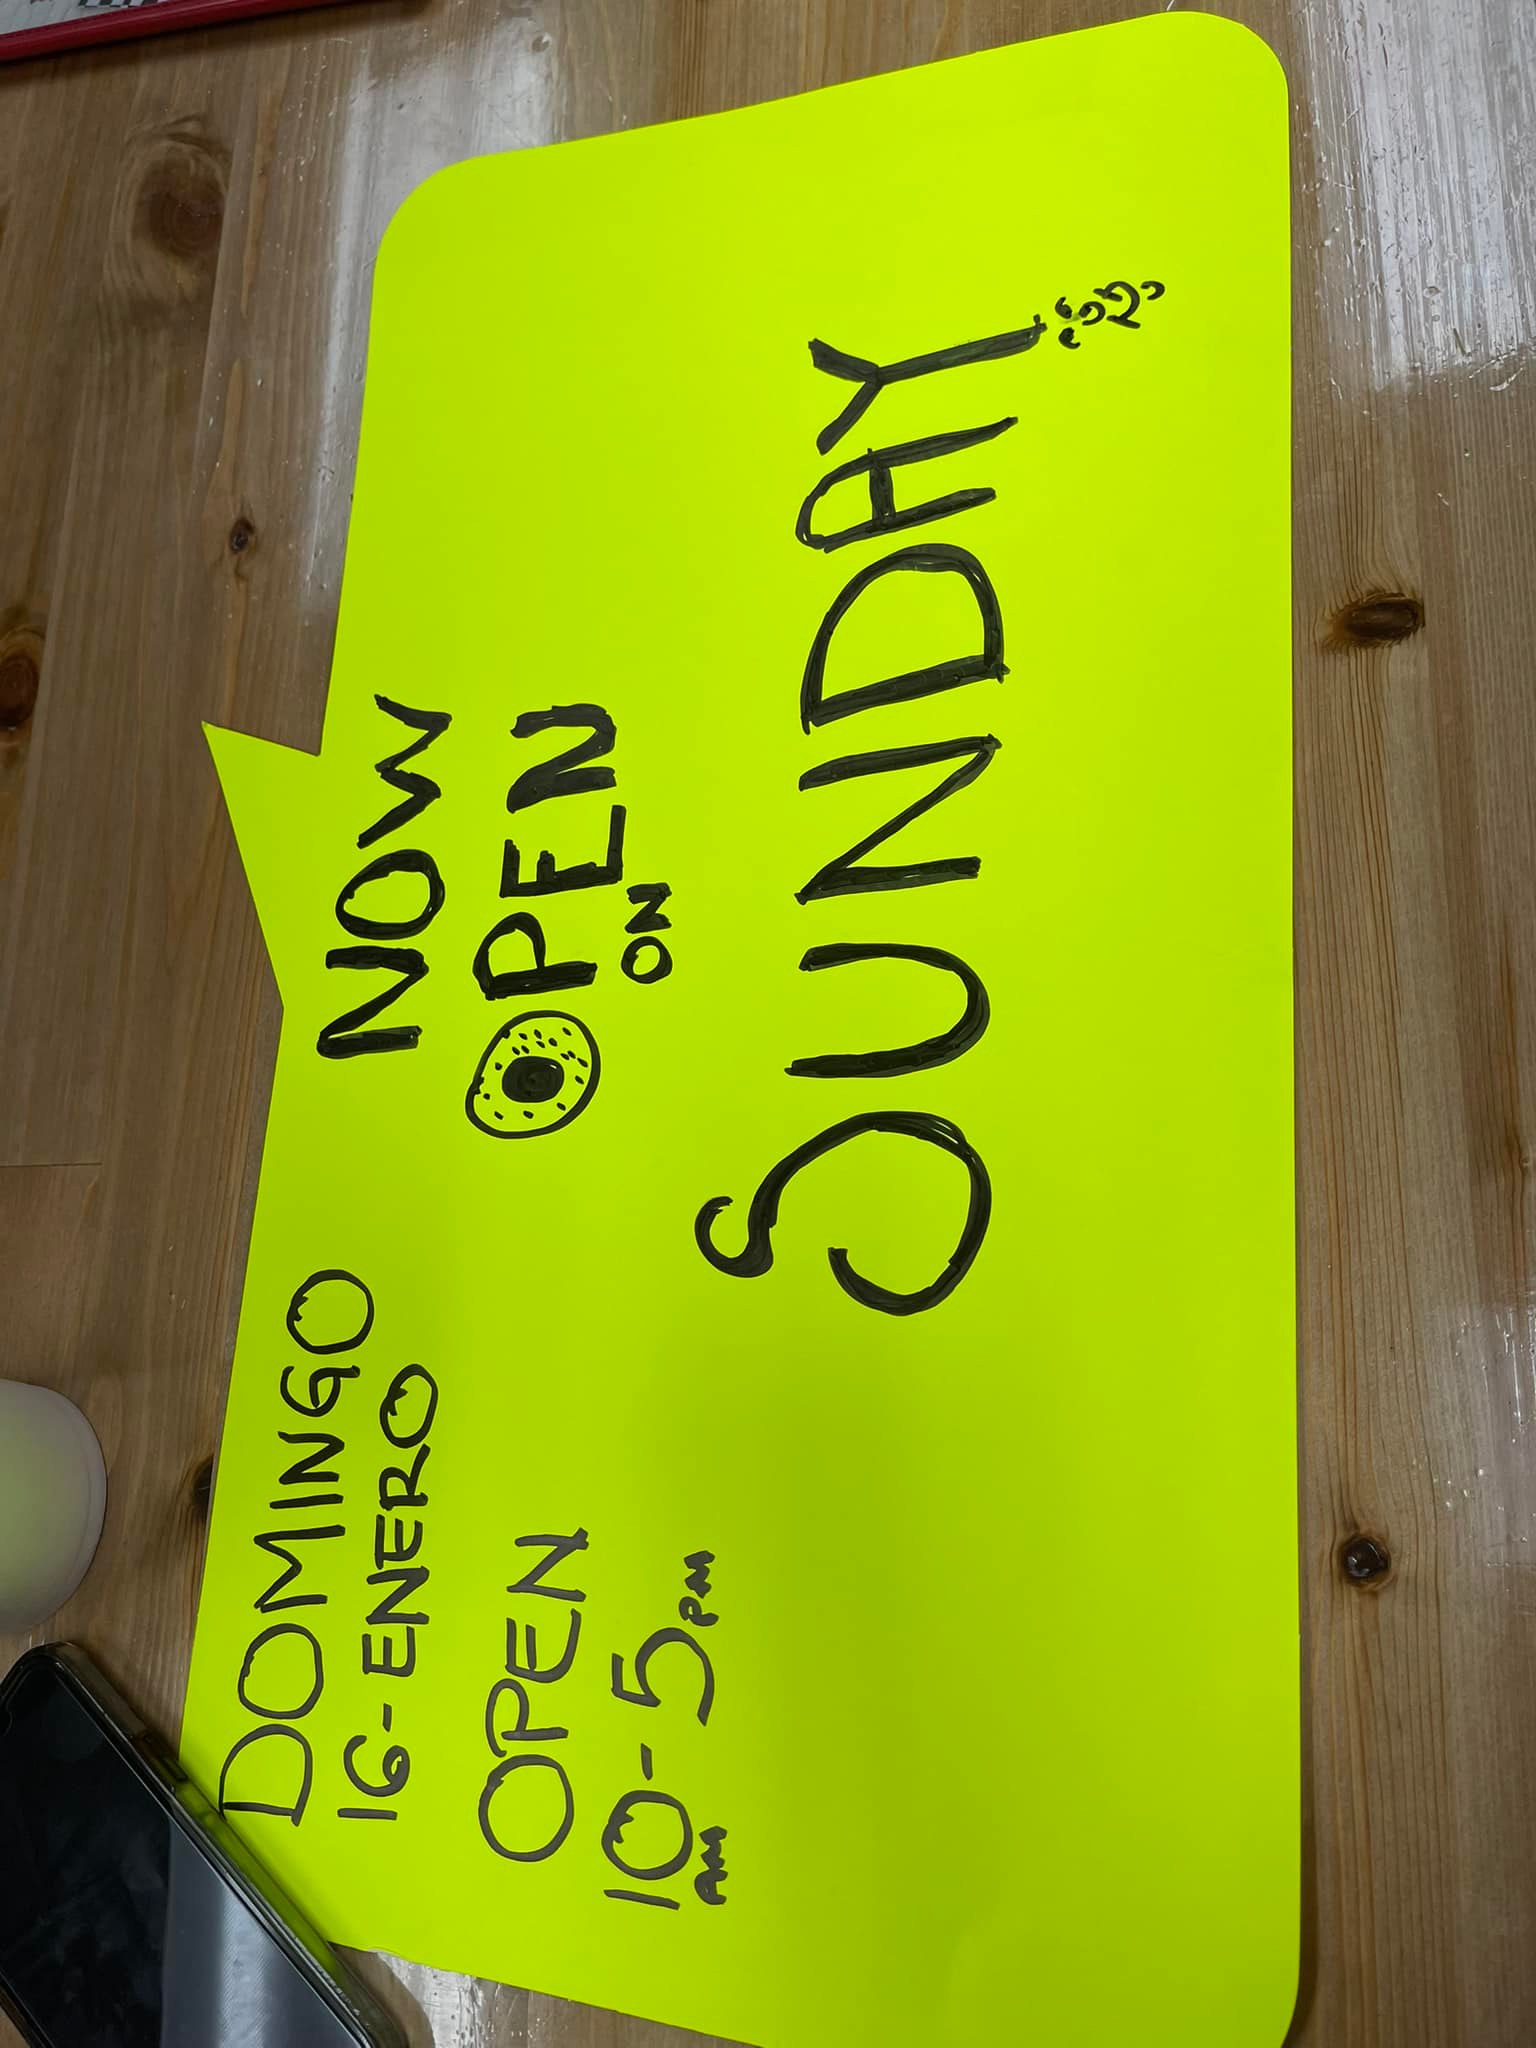 DOMINGO
16-ENERO
OPEN
10-5PM
AM
NOW
OPEN
ON
SUNDAY